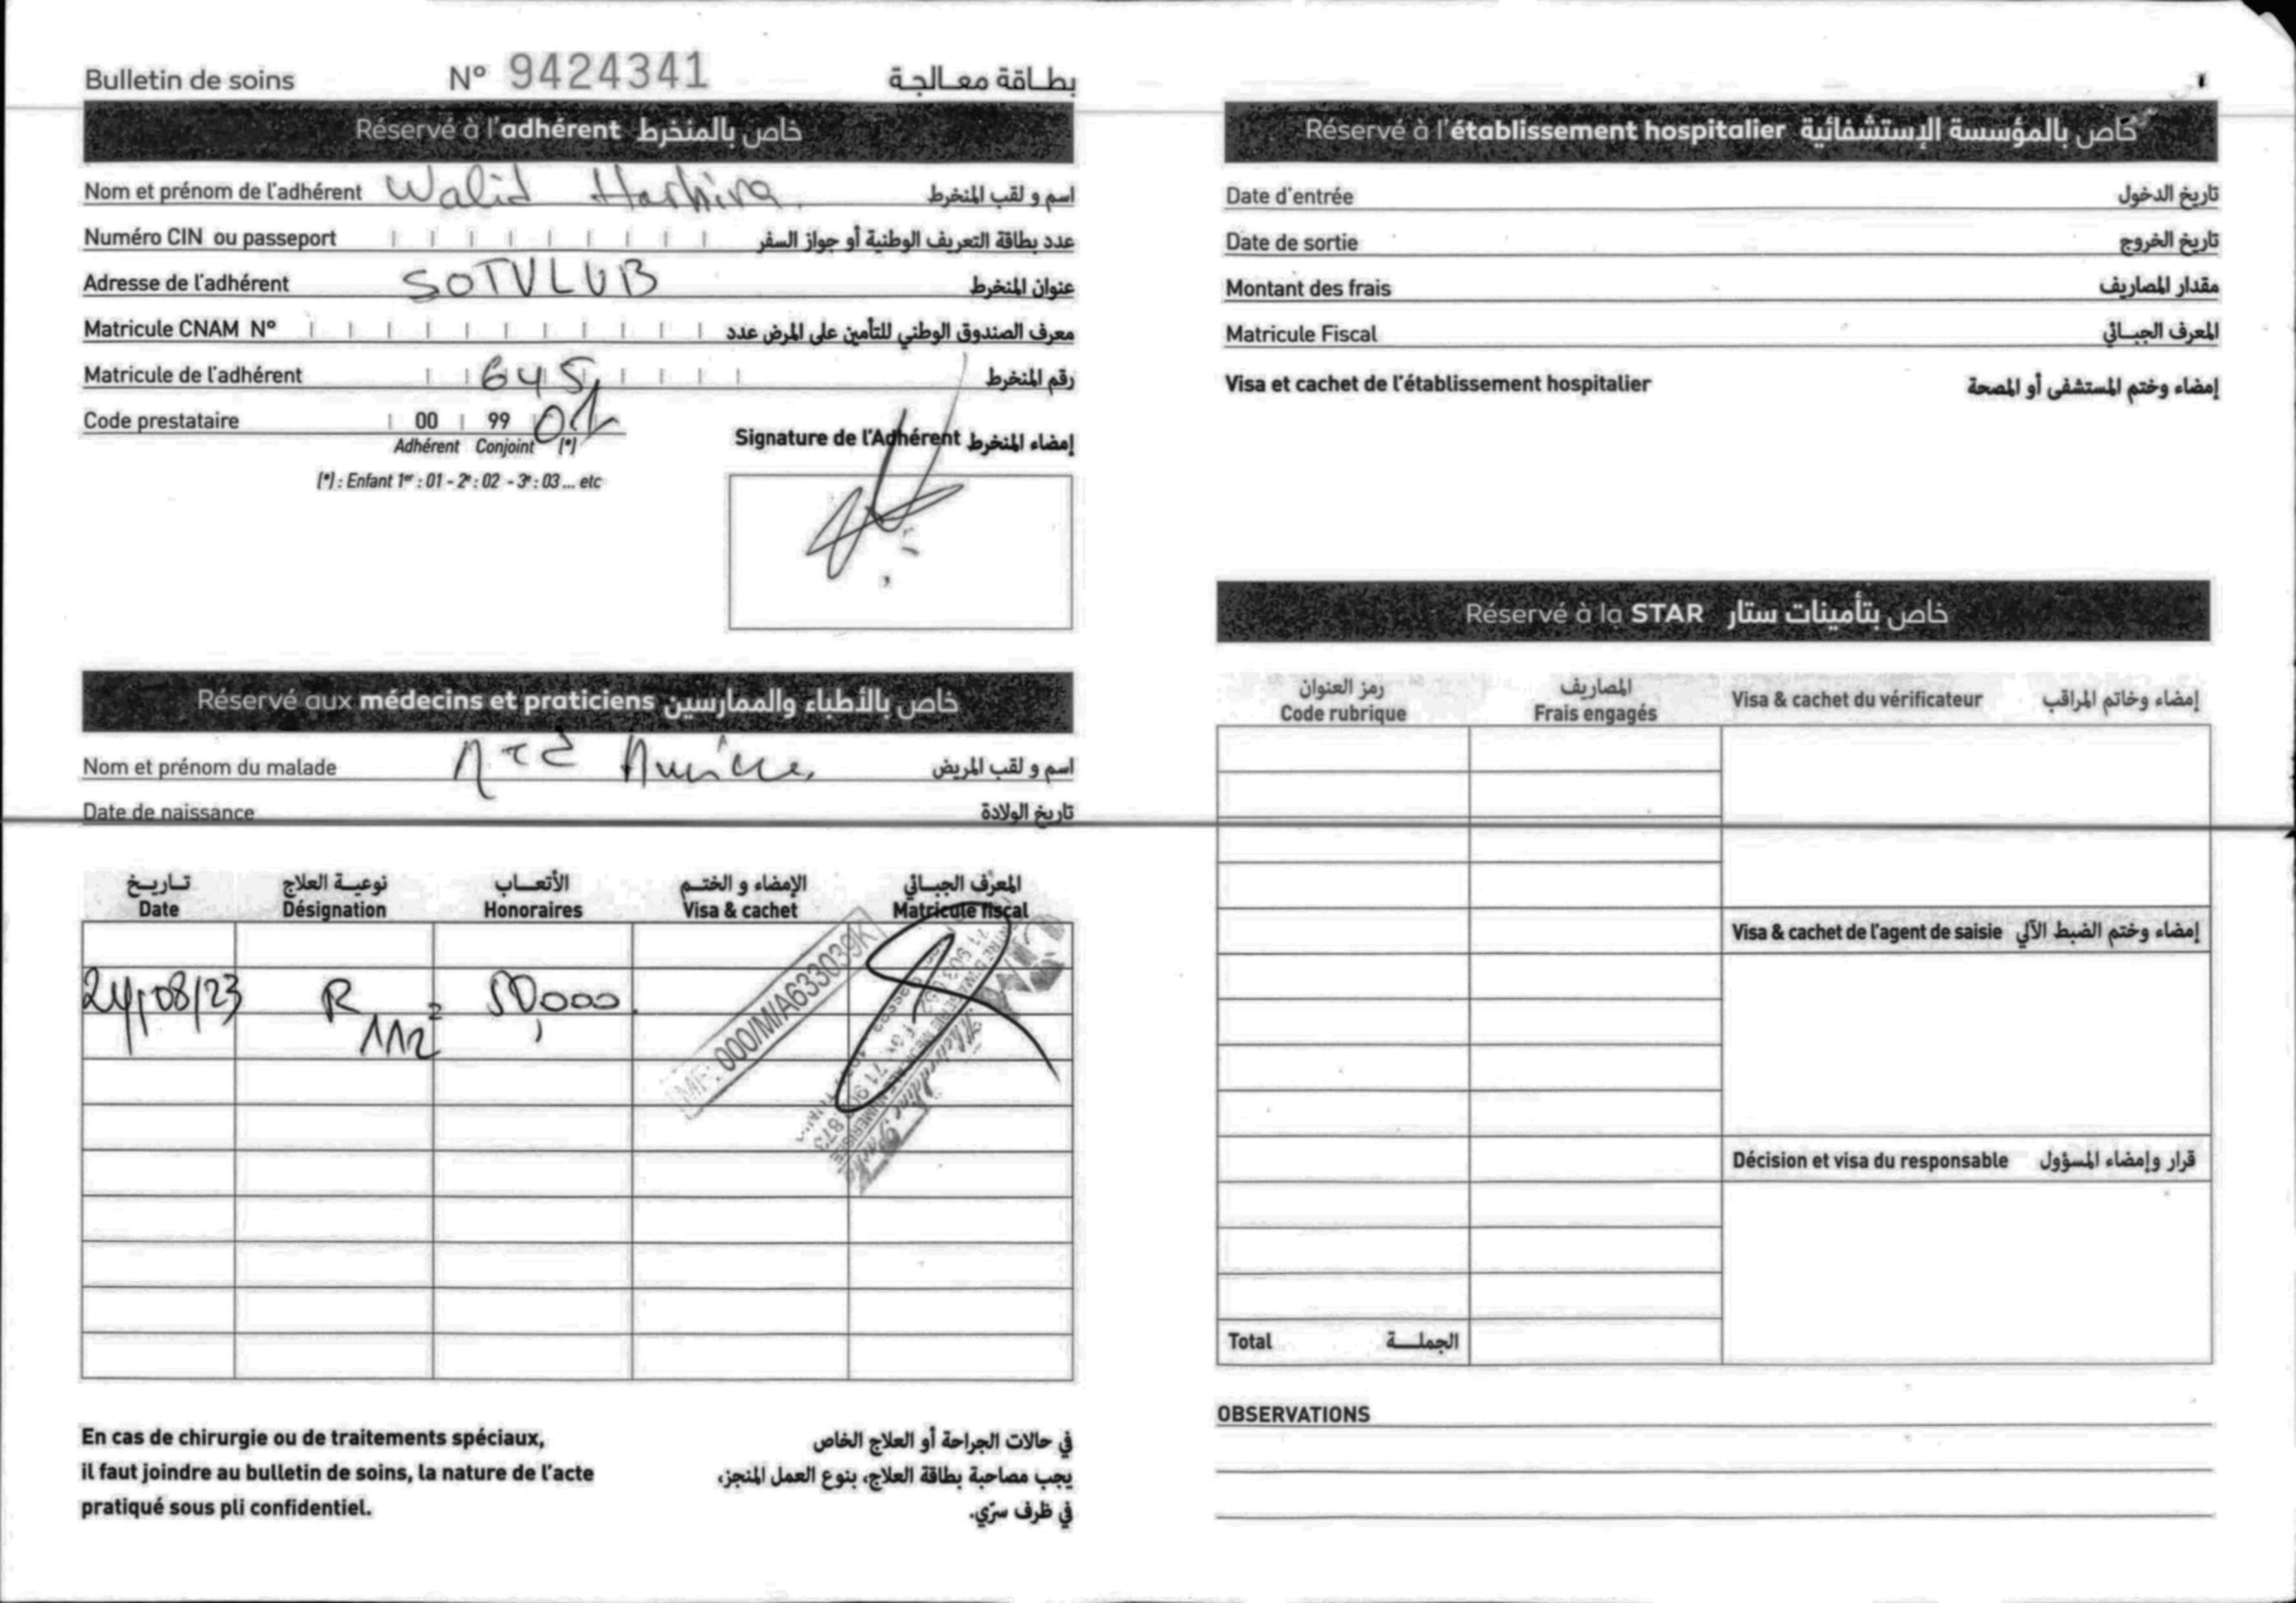 Bulletin de soins N° 9424341 بطاقة معالجة
Réservé à l'adhérent خاص بالمنخرط
Nom et prénom de l'adhérent Walid اسم و لقب المنخرط
Numéro CIN ou passeport عدد بطاقة التعريف الوطنية أو جواز السفر
Adresse de l'adhérent SOTULUB عنوان المنخرط
Matricule CNAM N° معرف الصندوق الوطني للتأمين على المرض عدد
Matricule de l'adhérent 645 رقم المنخرط
Code prestataire 00 99 01
Adhérent Conjoint (*)
(*) : Enfant 1er : 01 - 2e : 02 - 3e : 03 ... etc
Signature de l'Adhérent إمضاء المنخرط
Réservé aux médecins et praticiens خاص بالأطباء والممارسين
Nom et prénom du malade اسم و لقب المريض
Date de naissance تاريخ الولادة
تاريخ نوعية العلاج الأتعاب الإمضاء و الختم المعرف الجبائي
Date Désignation Honoraires Visa & cachet Matricule fiscal
24/08/23 R 112 = 50,000
000/M/A633039K
En cas de chirurgie ou de traitements spéciaux,
il faut joindre au bulletin de soins, la nature de l'acte
pratiqué sous pli confidentiel.
في حالات الجراحة أو العلاج الخاص
يجب مصاحبة بطاقة العلاج، بنوع العمل المنجز،
في ظرف سرّي.
Réservé à l'établissement hospitalier خاص بالمؤسسة الإستشفائية
Date d'entrée تاريخ الدخول
Date de sortie تاريخ الخروج
Montant des frais مقدار المصاريف
Matricule Fiscal المعرف الجبائي
Visa et cachet de l'établissement hospitalier إمضاء وختم المستشفى أو المصحة
Réservé à la STAR خاص بتأمينات ستار
رمز العنوان المصاريف
Code rubrique Frais engagés Visa & cachet du vérificateur إمضاء وخاتم المراقب
Visa & cachet de l'agent de saisie إمضاء وختم الضبط الآلي
Décision et visa du responsable قرار وإمضاء المسؤول
Total الجملة
OBSERVATIONS